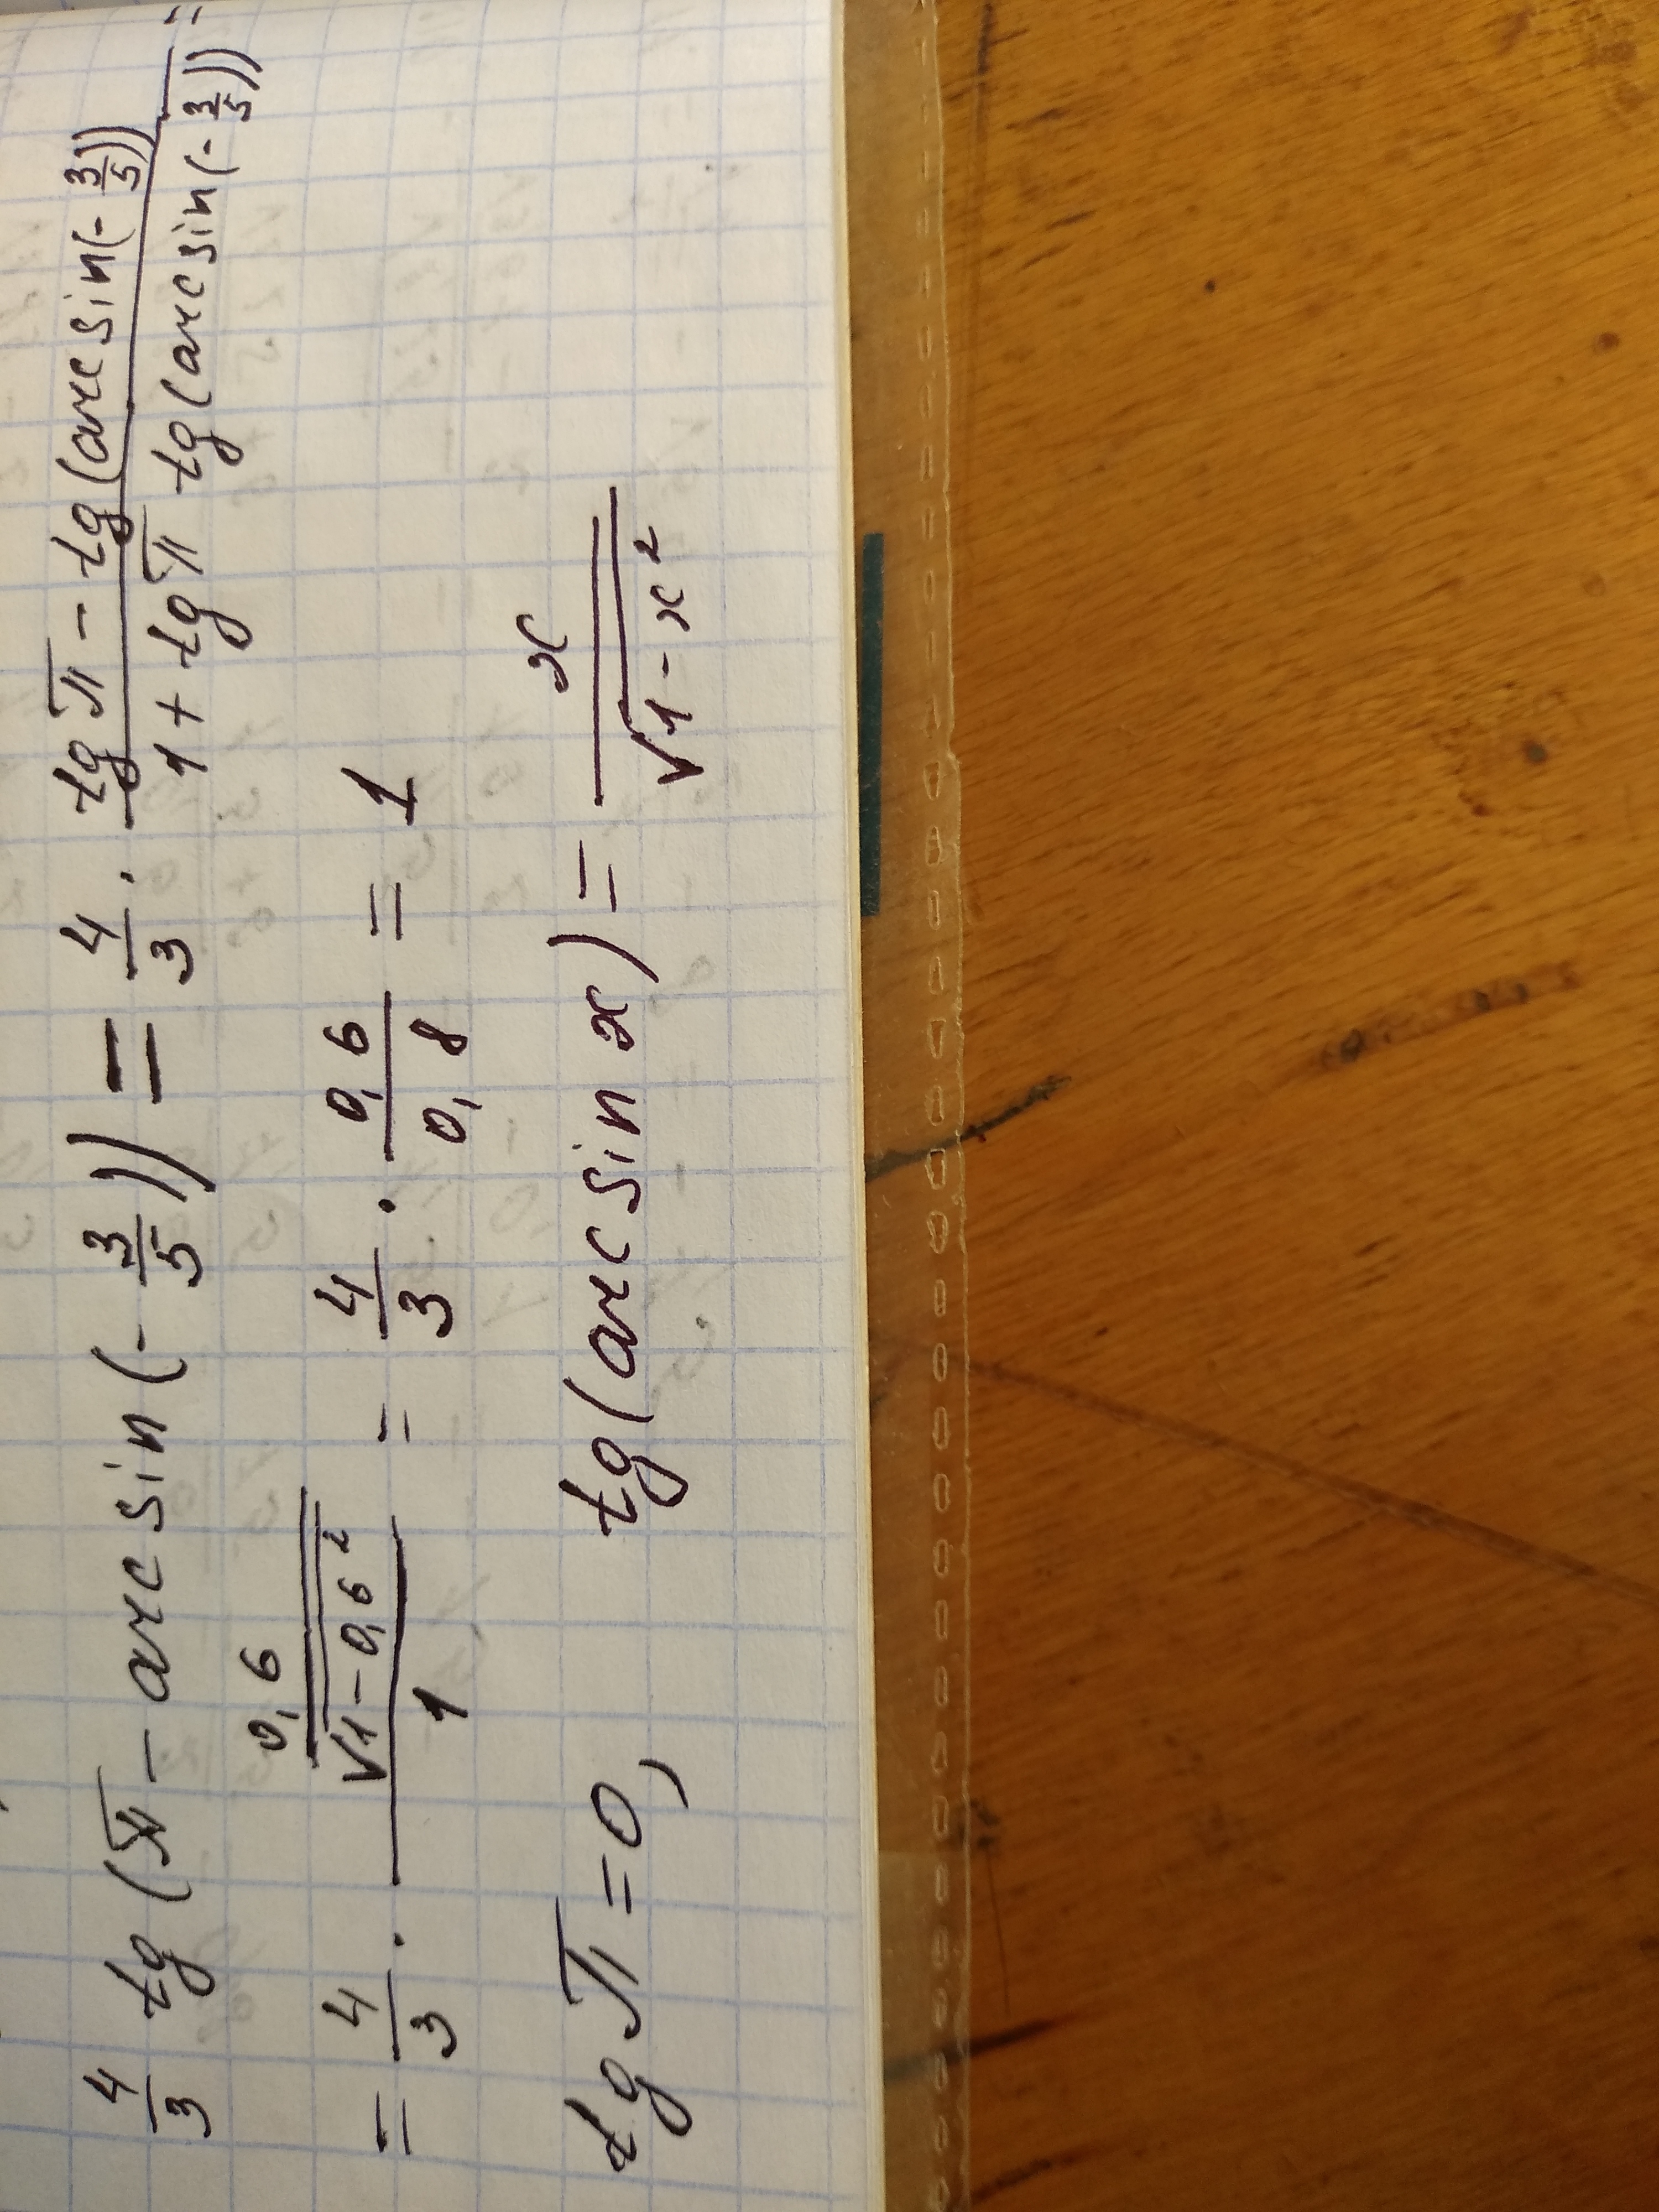 4/3 tg(π - arcsin(-3/5)) = 4/3 · (tg π - tg(arcsin(-3/5)))/(1 + tg π tg(arcsin(-3/5))) =
= 4/3 · (0,6/√(1-0,6²))/1 = 4/3 · 0,6/0,8 = 1
tg π = 0, tg(arcsin x) = x/√(1-x²)